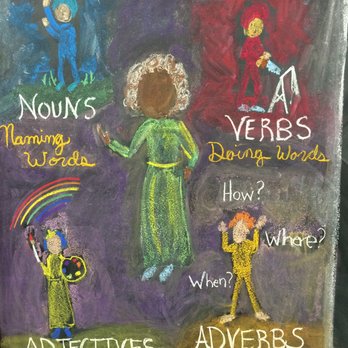 NOUNS
Naming
Words
VERBS
Doing Words
How?
Where?
When?
ADJECTIVES
ADVERBS